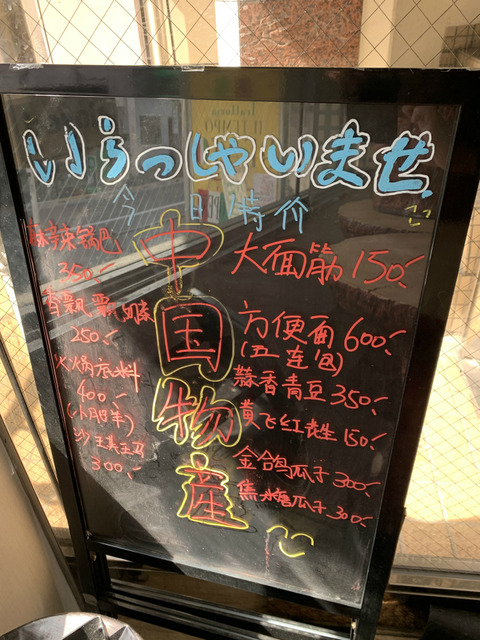 いらっしゃいませ
今日特价
中国物産
麻辣锅巴
350.-
香飘飘奶茶
250.-
火锅底料
400.-
(小肥羊)
300.-
大面筋 150.-
方便面 600.-
(五连包)
蒜香青豆 350.-
黄飞红花生 150.-
金鸽瓜子 300.-
焦糖瓜子 300.-